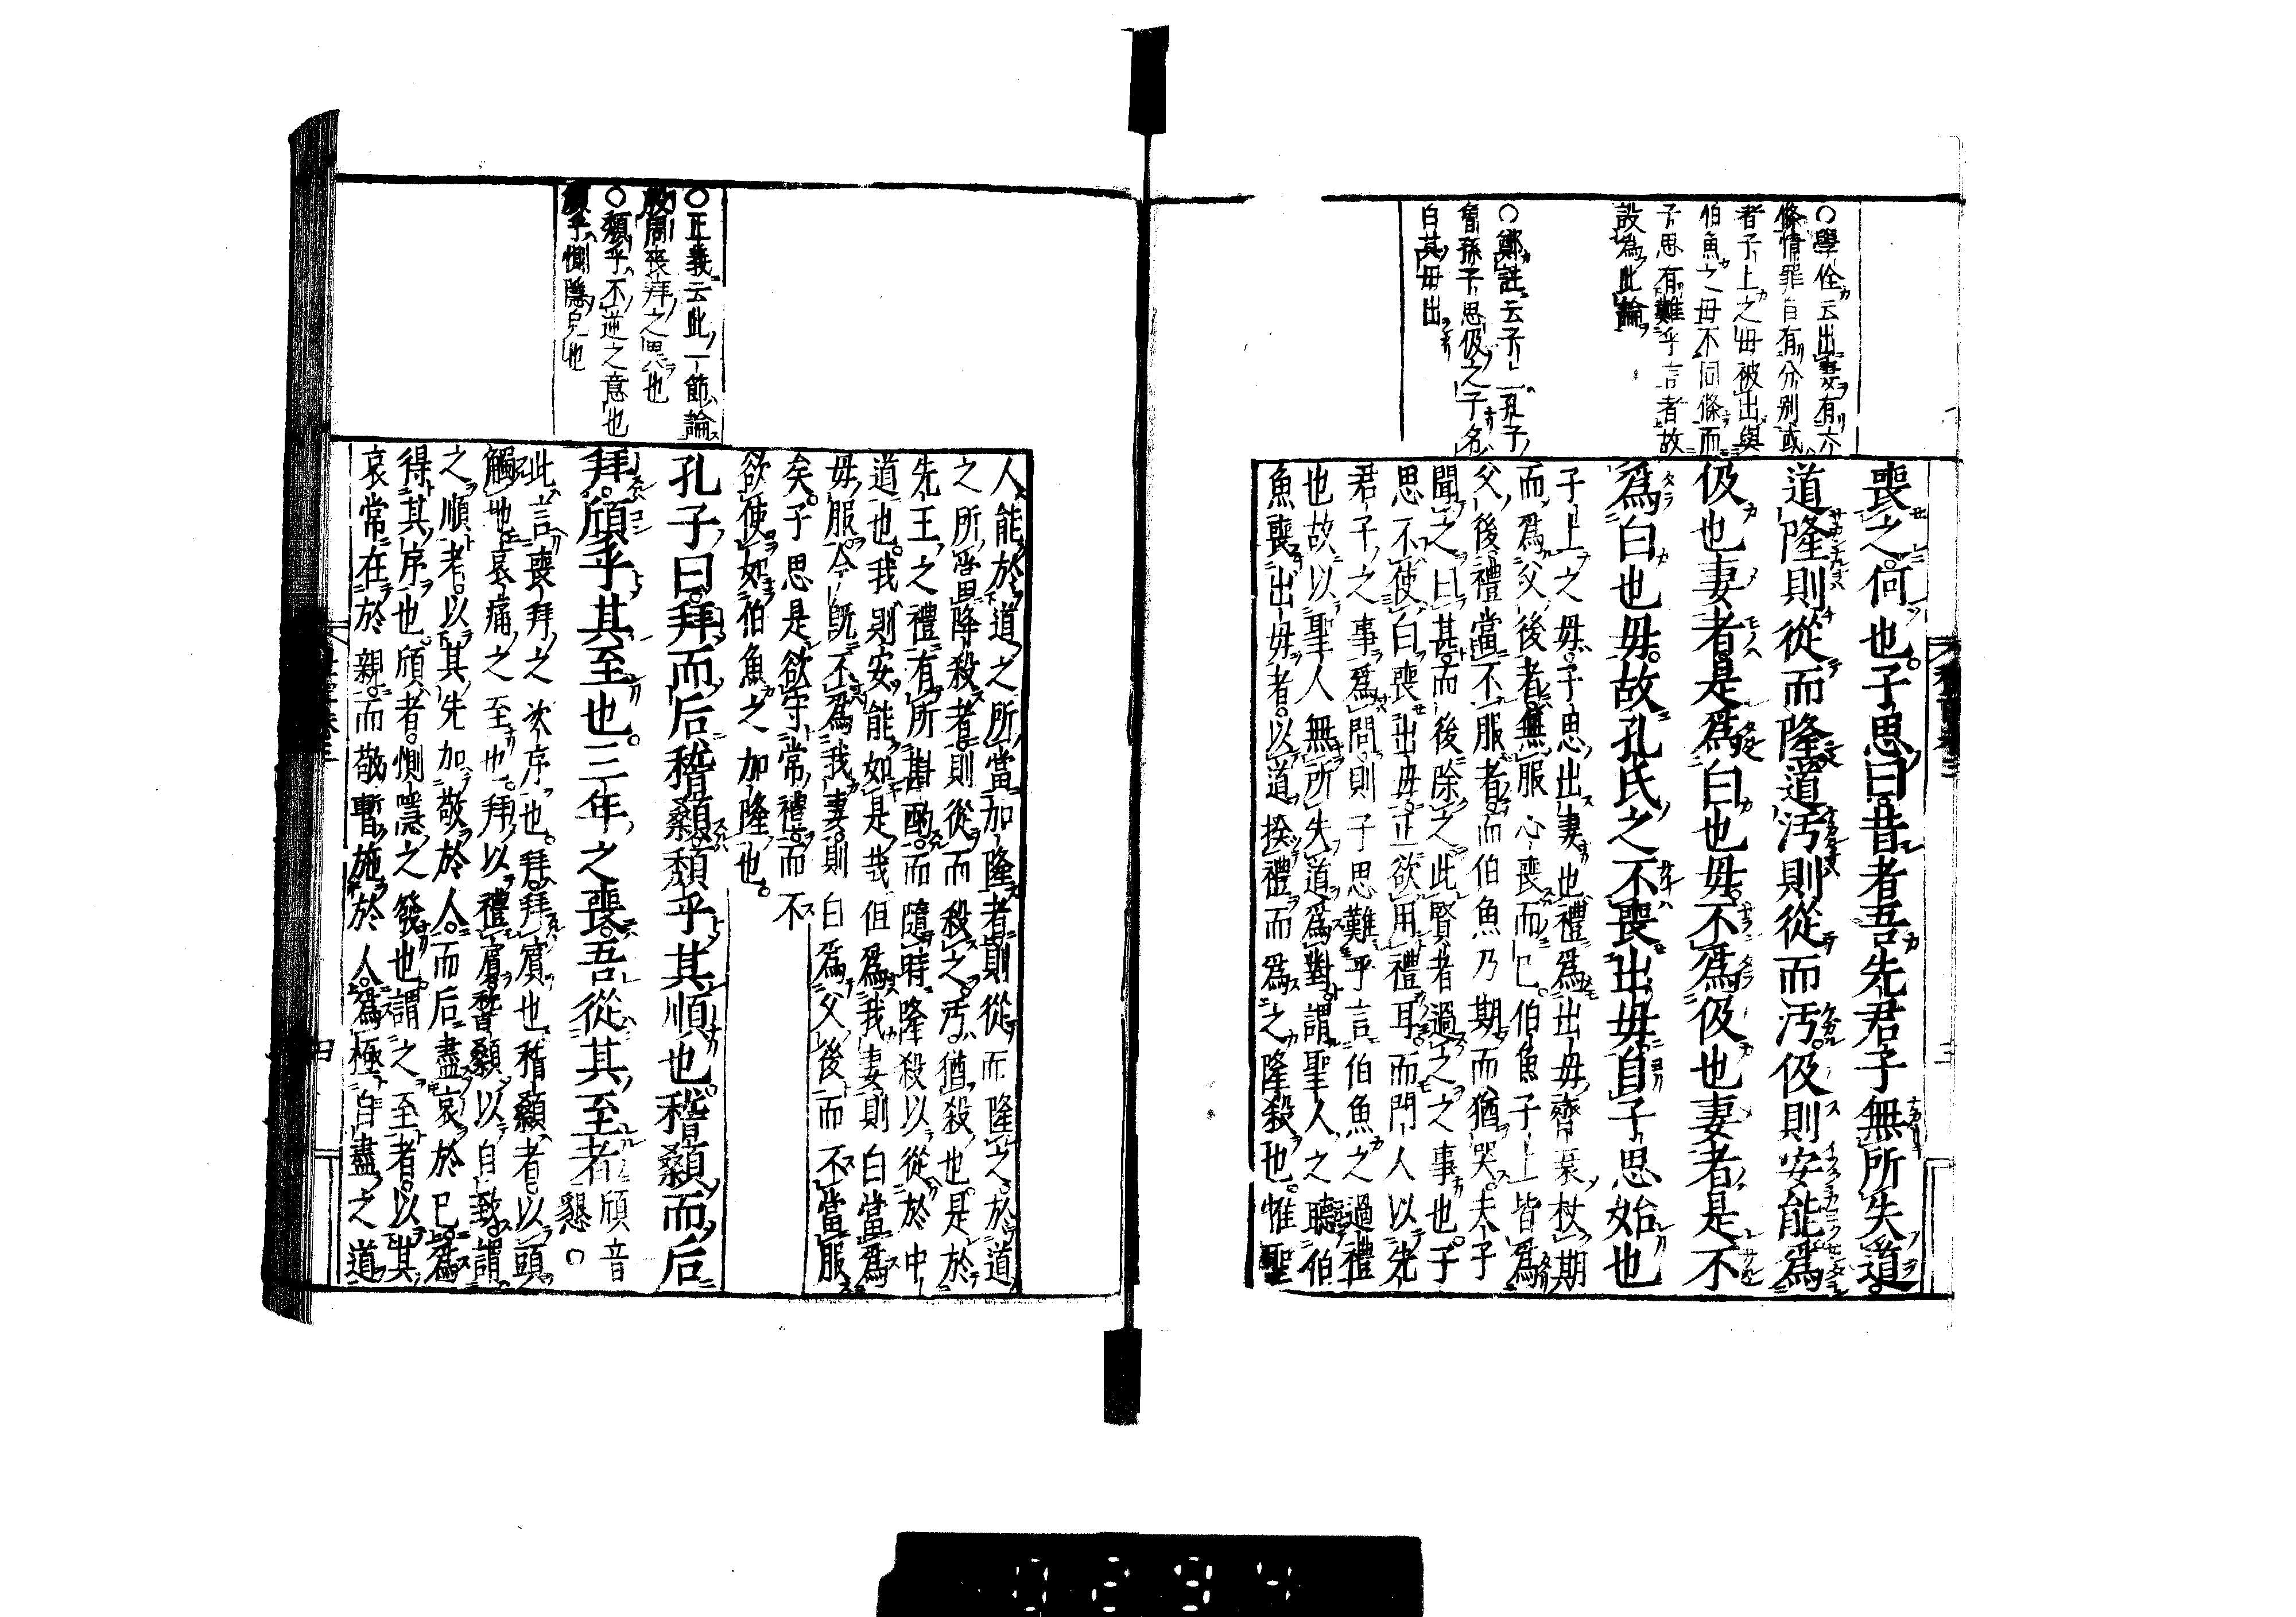 ○學佺云出妻有六
條情罪自有分別或
者子上之毋被出與
伯魚之毋不同條而
子思有難乎言者故
設為此論
○鄭註云子上孔子
曾孫子思伋之子名
白其毋出
喪之何也子思曰昔者吾先君子無所失道
道隆則從而隆道汚則從而汚伋則安能爲
伋也妻者是爲白也毋不爲伋也妻者是不
爲白也毋故孔氏之不喪出毋自子思始也
子上之毋子思出妻也禮爲出毋齊衰杖期
而爲父後者無服心喪而已伯魚子上皆爲
父後禮當不服者而伯魚乃期而猶哭夫子
聞之曰甚而後除之此賢者過之之事也子
思不使白喪出毋正欲用禮耳而門人以先
君子之事爲問則子思難乎言伯魚之過禮
也故以聖人無所失道爲對謂聖人之聽伯
魚喪出毋者以道揆禮而爲之隆殺也惟聖
○正義云此一節論
殷周喪拜之異也
○頽乎不逆之意也
頎乎惻隱皃也
人能於道之所當加隆者則從而隆之於道
之所當降殺者則從而殺之汚猶殺也是於
先王之禮有所斟酌而隨時隆殺以從於中
道也我則安能如是哉但爲我妻則白當爲
毋服今既不爲我妻則白爲父後而不當服
矣子思是欲守常禮而不
欲使如伯魚之加隆也
孔子曰拜而后稽顙頽乎其順也稽顙而后
拜頎乎其至也三年之喪吾從其至者頎音懇○
此言喪拜之次序也拜拜賓也稽顙者以頭
觸地哀痛之至也拜以禮賓稽顙以自致謂
之順者以其先加敬於人而后盡哀於己爲
得其序也頎者惻隱之發也謂之至者以其
哀常在於親而敬暫施於人爲極自盡之道
0294